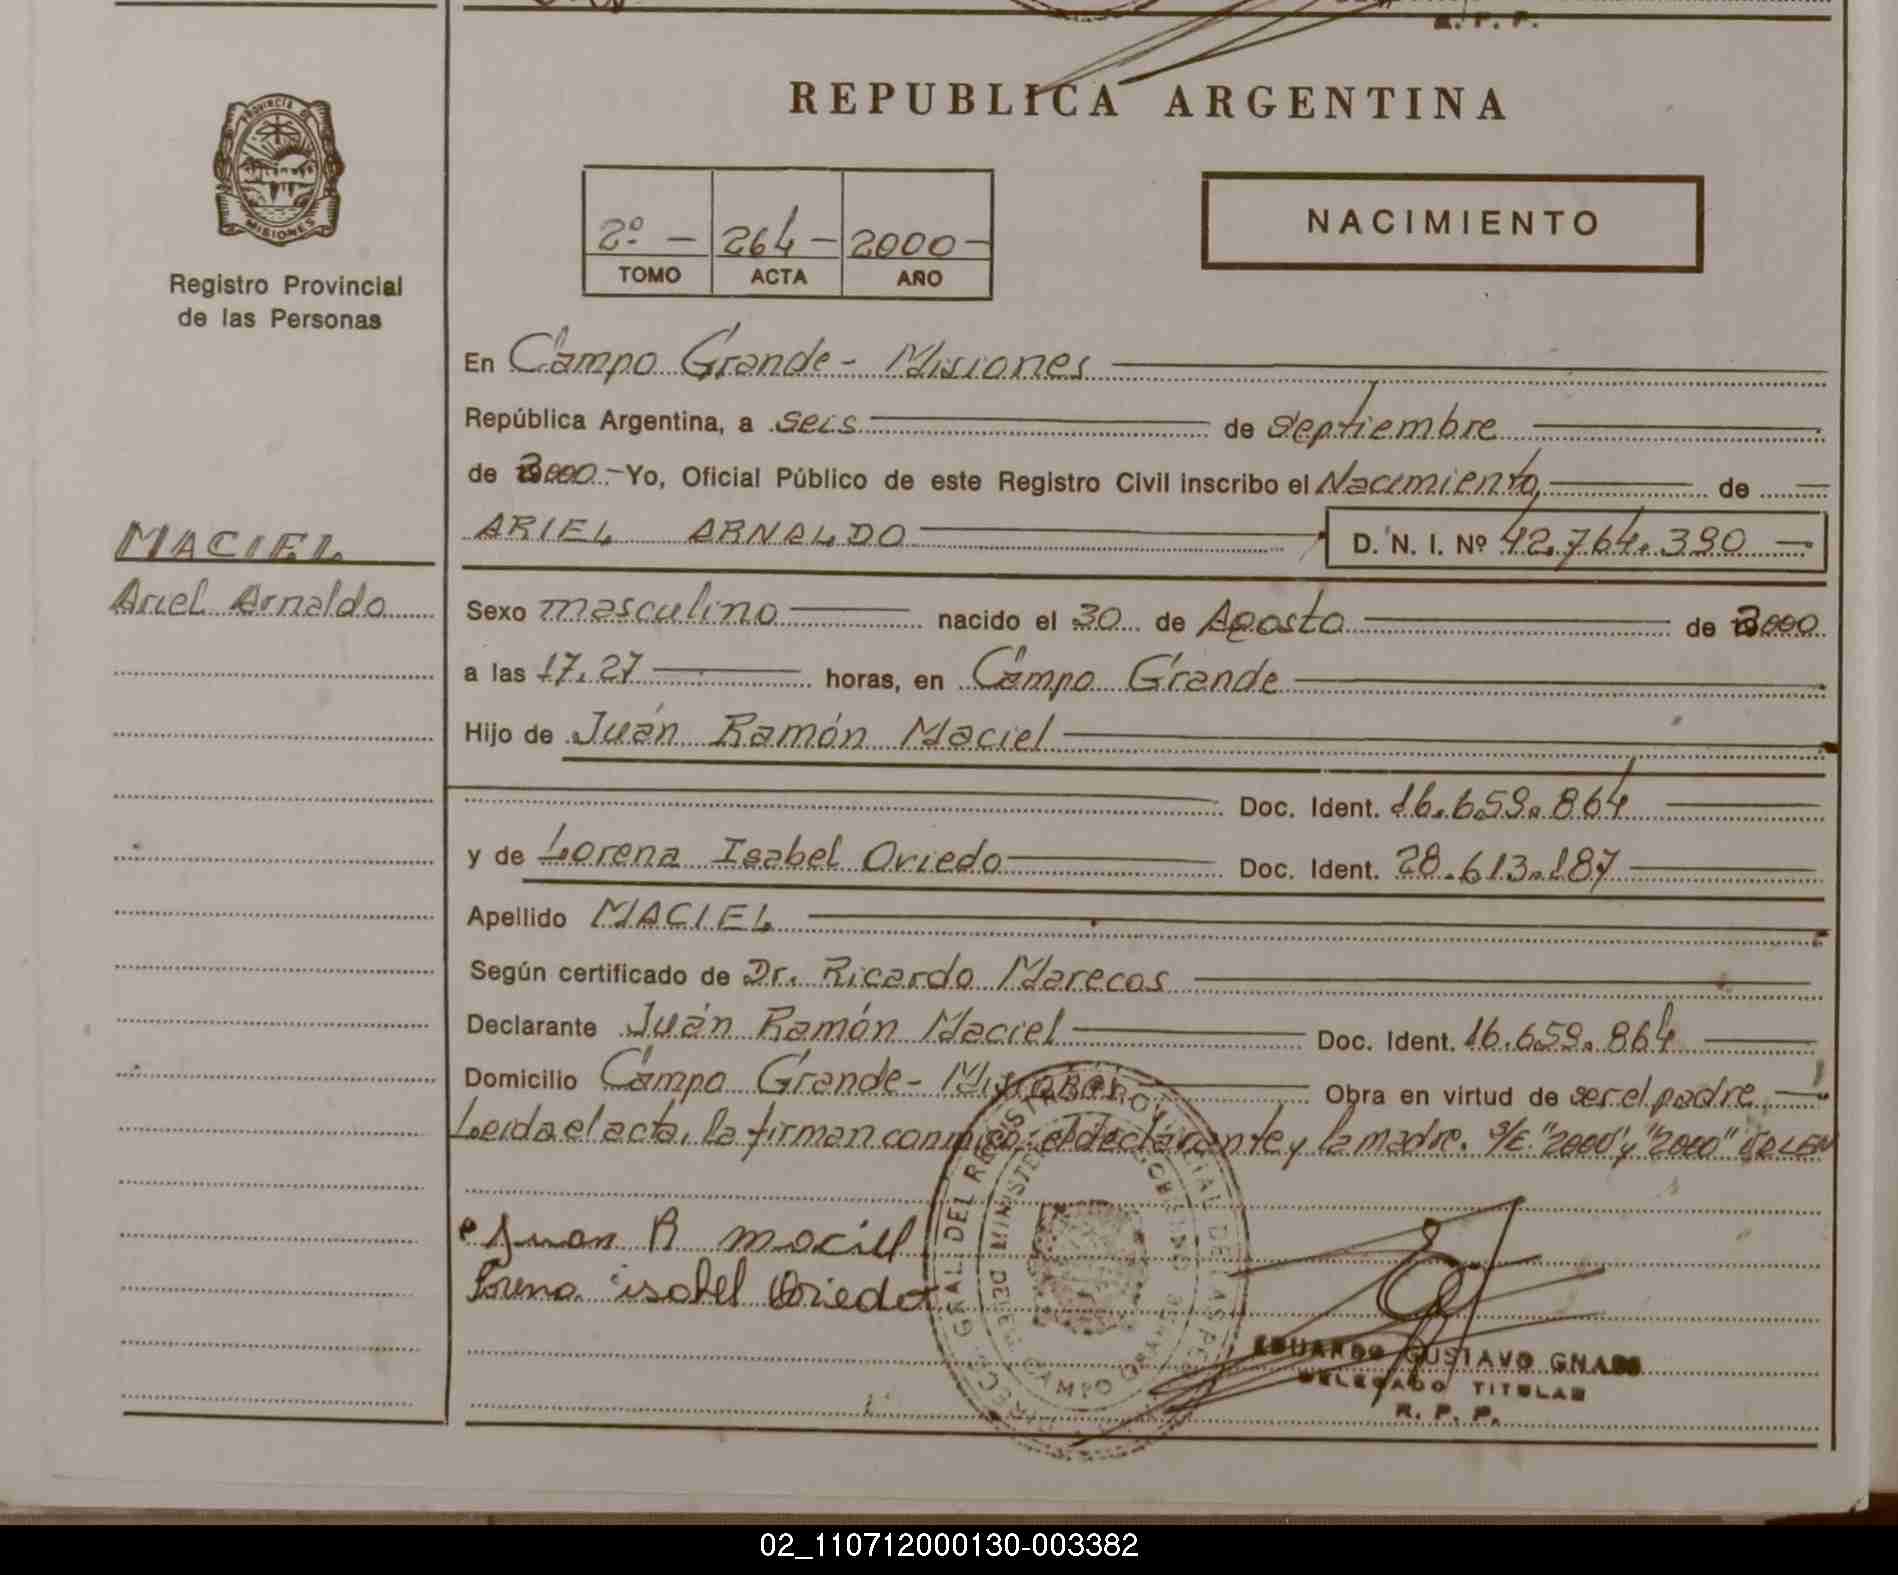 R. P. P.
REPUBLICA ARGENTINA
PROVINCIA DE
MISIONES
Registro Provincial
de las Personas
2º - 264 - 2000 -
TOMO ACTA AÑO
NACIMIENTO
En Campo Grande - Misiones
República Argentina, a seis de septiembre
de 2000.- Yo, Oficial Público de este Registro Civil inscribo el Nacimiento, de
MACIEL
Ariel Arnaldo
ARIEL ARNALDO D. N. I. Nº 42.764.390
Sexo masculino nacido el 30 de Agosto de 2000
a las 17.27 horas, en Campo Grande
Hijo de Juán Ramón Maciel
Doc. Ident. 16.659.864
y de Lorena Isabel Oviedo Doc. Ident. 28.613.187
Apellido MACIEL
Según certificado de Dr. Ricardo Marecos
Declarante Juán Ramón Maciel Doc. Ident. 16.659.864
Domicilio Campo Grande - Misiones Obra en virtud de ser el padre
Leida el acta, la firman conmigo; el declarante y la madre. S/E. "2000" y "2000" VALEN
Juan R maciel
Lorena isabel Oviedo
EDUARDO GUSTAVO GNASS
DELEGADO TITULAR
R. P. P.
02_110712000130-003382